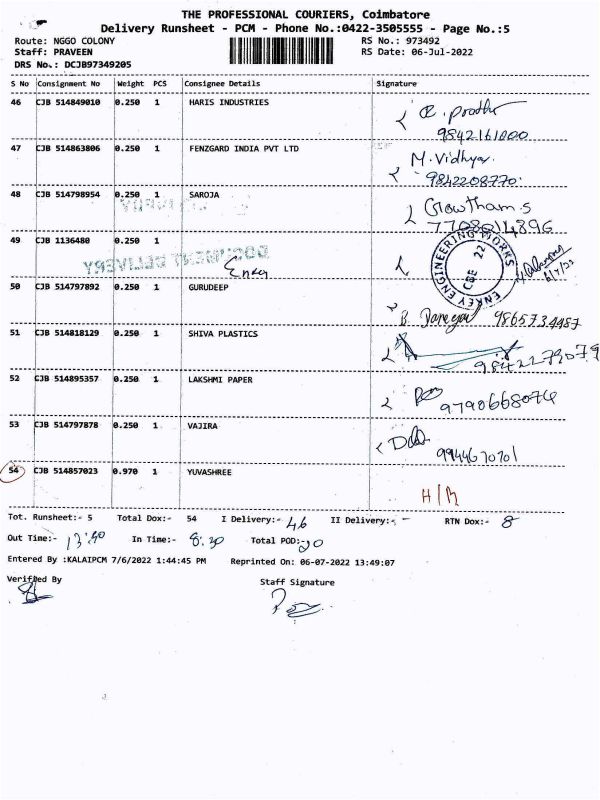 THE PROFESSIONAL COURIERS, Coimbatore
Delivery Runsheet - PCM - Phone No.:0422-3505555 - Page No.:5
Route: NGGO COLONY RS No.: 973492
Staff: PRAVEEN RS Date: 06-Jul-2022
DRS No.: DCJB97349205
S No Consignment No Weight PCS Consignee Details Signature
46 CJB 514849010 0.250 1 HARIS INDUSTRIES
9842161000
47 CJB 514863806 0.250 1 FENZGARD INDIA PVT LTD M. Vidhya
9842208770
48 CJB 514798954 0.250 1 SAROJA Gowtham.S
7708014896
49 CJB 1136480 0.250 1
DOCUMENT DELIVERY
Enkey
ENKEY ENGINEERING WORKS
CBE 22
50 CJB 514797892 0.250 1 GURUDEEP
B. 9865734987
51 CJB 514818129 0.250 1 SHIVA PLASTICS
9842279079
52 CJB 514895357 0.250 1 LAKSHMI PAPER
9790668076
53 CJB 514797878 0.250 1 VAJIRA
9944670701
54 CJB 514857023 0.970 1 YUVASHREE
H/R
Tot. Runsheet:- 5 Total Dox:- 54 I Delivery:- 46 II Delivery:- - RTN Dox:- 8
Out Time:- 13:50 In Time:- 8:30 Total POD:- 20
Entered By :KALAIPCM 7/6/2022 1:44:45 PM Reprinted On: 06-07-2022 13:49:07
Verified By Staff Signature